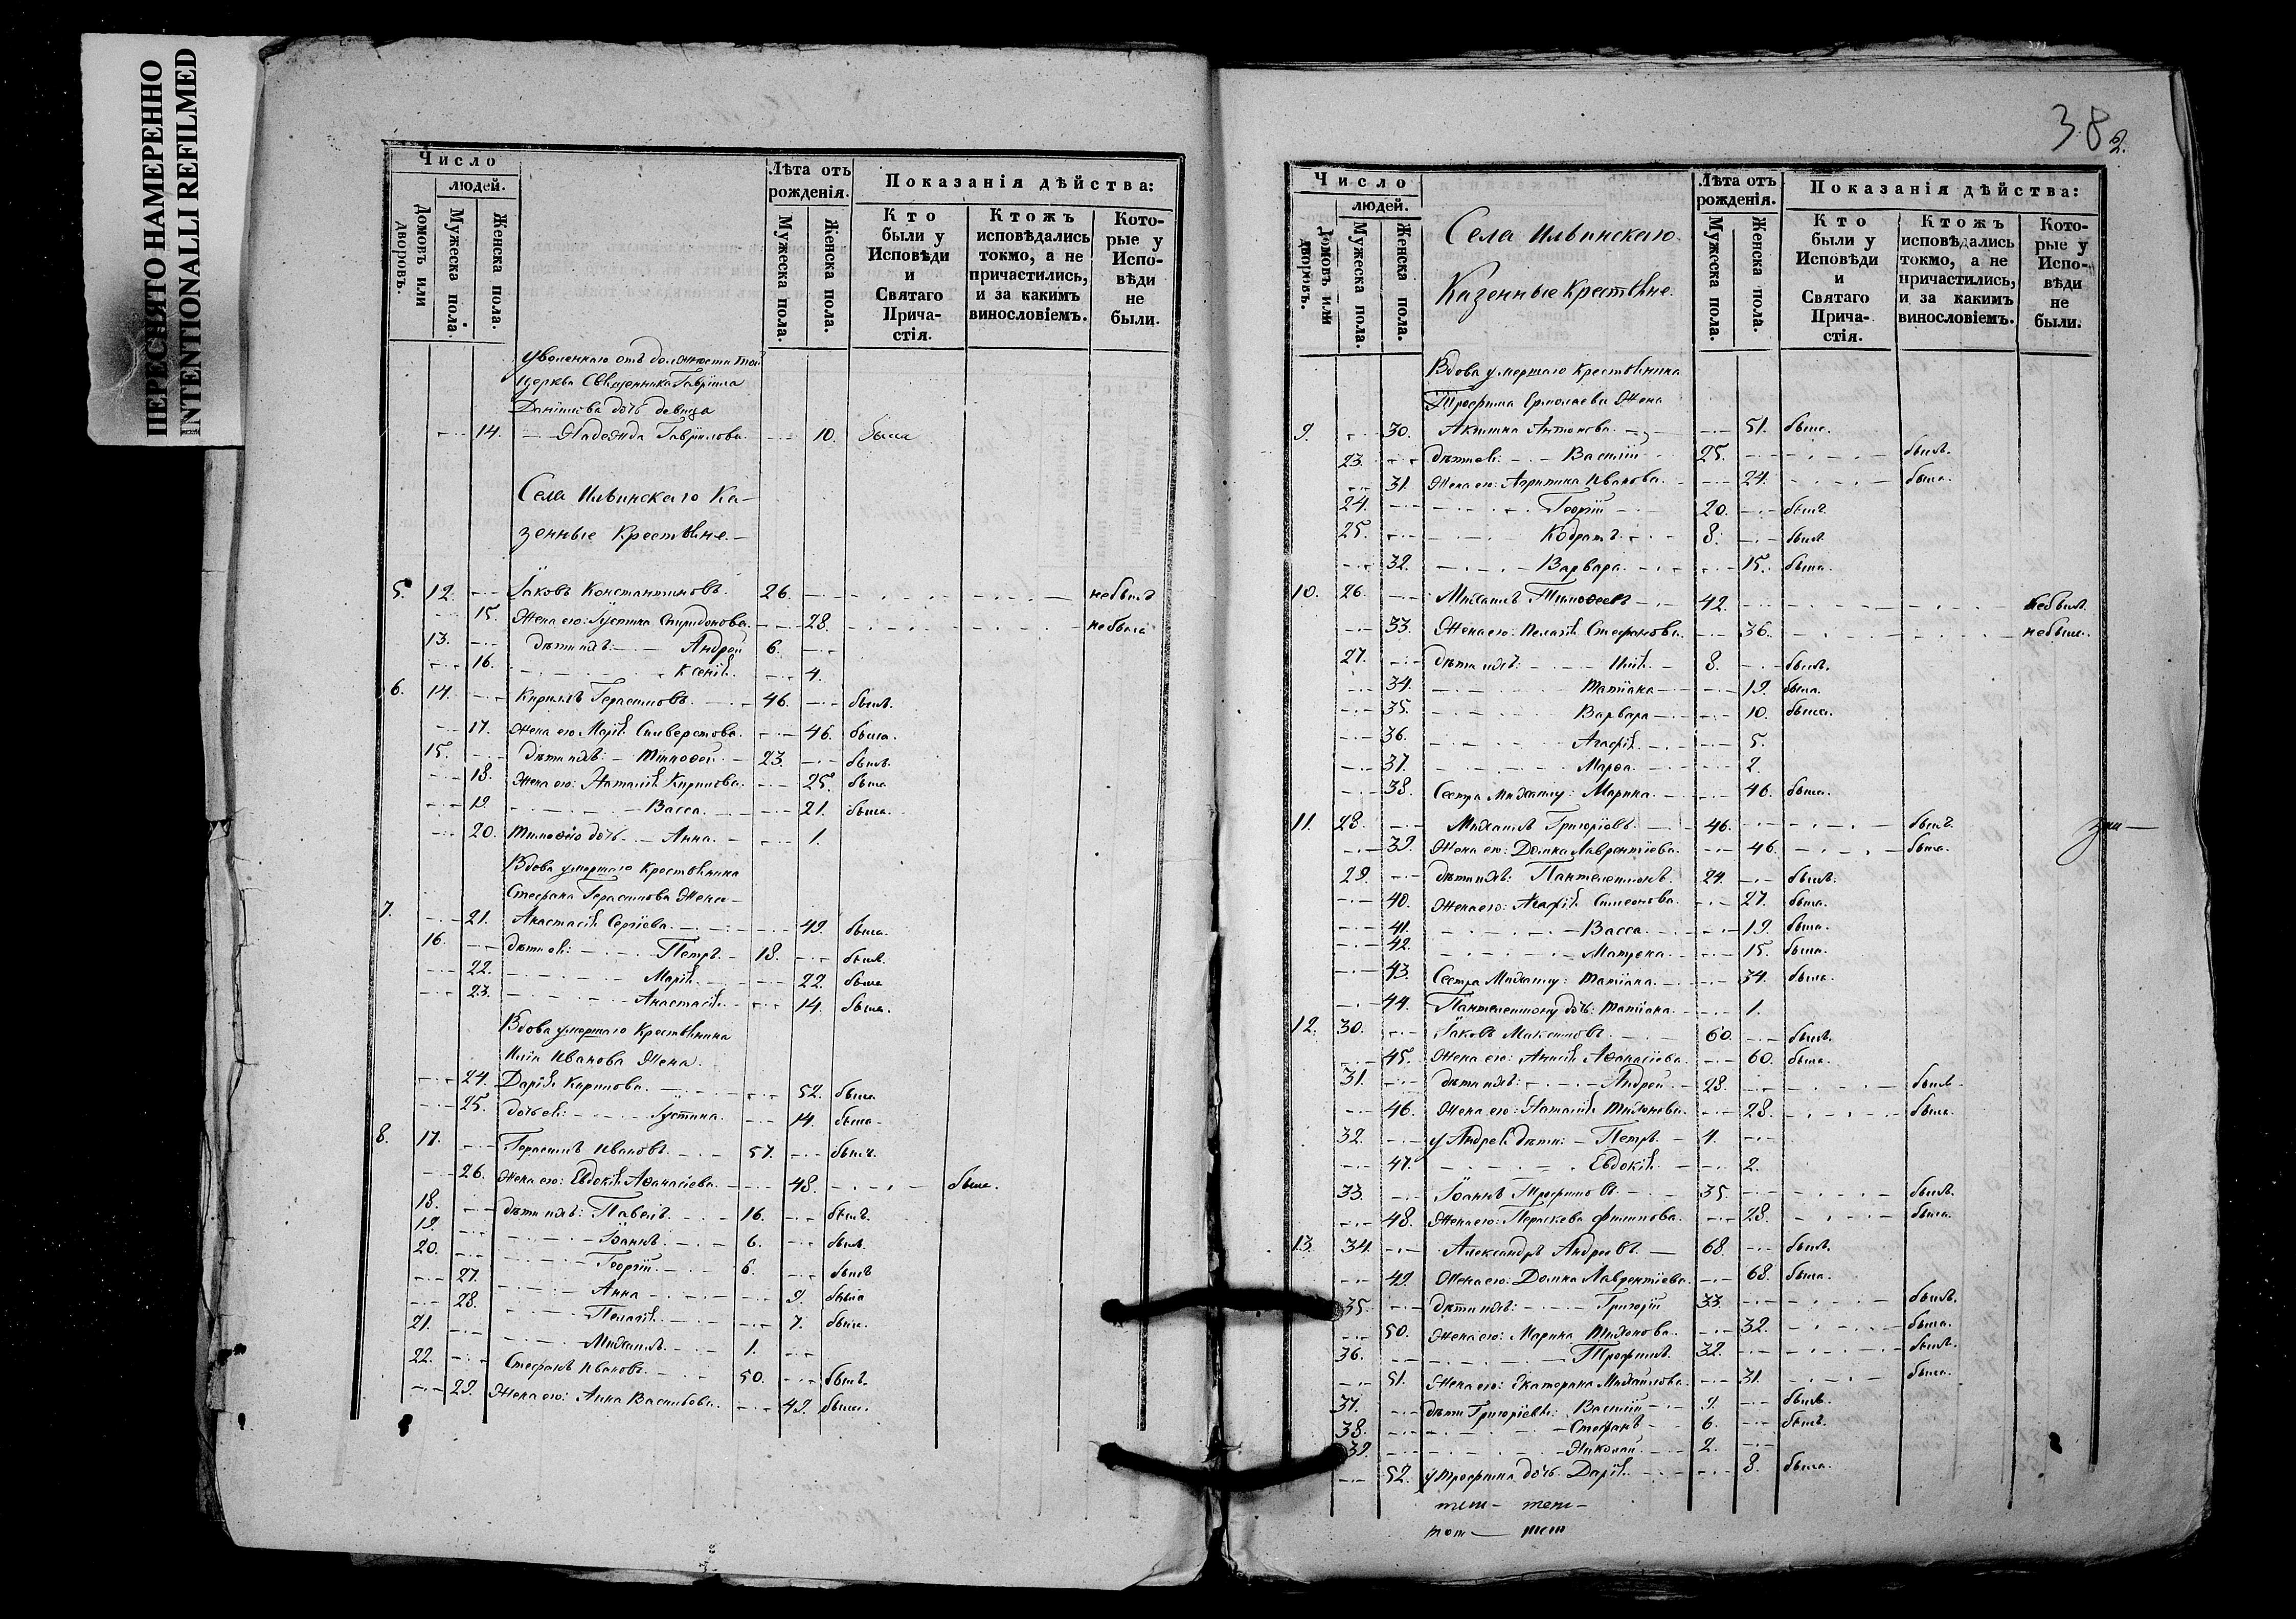 ПЕРЕСНЯТО НАМЕРЕННО
INTENTIONALLI REFILMED
Число
людей.
Домовъ или дворовъ.
Мужеска пола.
Женска пола.
Лѣта отъ рожденія.
Мужеска пола.
Женска пола.
Показанія дѣйства:
Кто были у Исповѣди и Святаго Прича- стія.
Ктожъ исповѣдались токмо, а не причастились, и за какимъ винословіемъ.
Кото- рые у Испо- вѣди не были.
уволеннаго отъ должности той
церкви Священника Гавріила
Даниілова дочь девица
14. Надежда Гавріилова 10. была
Села Ильинскаго Ка-
зенные Крестьяне.
5. 12. Іаковъ Константиновъ. 26. небылъ
15. Жена его: Іустина Спиридонова. 28. небыла
13. дѣти ихъ: Андрей 6.
16. Ксенія. 4.
6. 14. Кириллъ Герасимовъ. 46. былъ.
17. Жена его Марія Сильверстова. 46. была.
15. дѣти ихъ: Тимоѳей 23. былъ.
18. Жена его: Наталія Кирилова. 25. была
19. Васса. 21. была.
20. Тимоѳею дочь Анна. 1.
Вдова умершаго Крестьянина
Стефана Герасимова Жена
7. 21. Анастасія Сергіева. 49. была.
16. дѣти ея: Петръ. 18. былъ.
22. Марія. 22. была
23. Анастасія. 14. была.
Вдова умершаго Крестьянина
Иліи Иванова Жена.
24. Дарія Карпова. 52. была
25. дочь ея: Іустина. 14. была
8. 17. Герасимъ Ивановъ. 57. былъ.
26. Жена его: Евдокія Аѳанасіева. 48. была.
18. дѣти ихъ: Павелъ. 16. былъ.
19. Іоаннъ. 6. былъ.
20. Георгій. 6. былъ
27. Анна 9. была
28. Пелагія. 7. была.
21. Михаилъ. 1.
22. Стефанъ Ивановъ. 50. былъ.
29. Жена его: Анна Васильева. 49. была.
38
2.
Число
людей.
Домовъ или дворовъ.
Мужеска пола.
Женска пола.
Села Ильинскаго
Казенные Крестьяне.
Лѣта отъ рожденія.
Мужеска пола.
Женска пола.
Показанія дѣйства:
Кто были у Исповѣди и Святаго Прича- стія.
Ктожъ исповѣдались токмо, а не причастились, и за какимъ винословіемъ.
Кото- рые у Испо- вѣди не были.
Вдова умершаго Крестьянина
Трофима Ермолаева Жена
9. 30. Акилина Антонова. 51. была.
23. дѣти ея: Василій 25. былъ.
31. Жена его: Агрипина Иванова. 24. была.
24. Георгій 20. былъ
25. Кодратъ. 8. былъ
32. Варвара. 15. была.
10. 26. Михаилъ Тимоѳеевъ 42. небылъ.
33. Жена его: Пелагія Стефанова. 36. небыла.
27. дѣти ихъ: Илія. 8. былъ.
34. Татіана 19. была.
35. Варвара 10. была.
36. Агафія. 5.
37. Марѳа. 2.
38. Сестра Михаилу: Марина. 46. была.
11. 28. Михаилъ Григоріовъ. 46. былъ.
39. Жена его: Домна Лаврентіева. 46. была.
29. дѣти ихъ: Пантелеимонъ. 24. былъ.
40. Жена его: Агафія Симеонова. 27. была.
41. Васса. 19. была.
42. Матрона. 15. была.
43. Сестра Михаилу: Татіана. 34. была.
44. Пантелеимону дочь: Татіана. 1.
12. 30. Іаковъ Максимовъ. 60. былъ.
45. Жена его: Анисія Аѳанасіева. 60. была.
31. дѣти ихъ: Андрей. 28. былъ
46. Жена его: Наталія Тихонова. 28. была.
32. у Андрея дѣти: Петръ. 4.
47. Евдокія. 2.
33. Іоаннъ Трофимовъ. 35. былъ.
48. Жена его: Параскева Филипова. 28. была.
13. 34. Александръ Андреевъ. 68. былъ.
49. Жена его: Домна Лаврентіева. 68. была.
35. дѣти ихъ: Григорій 33. былъ.
50. Жена его: Марина Тихонова. 32. была.
36. Трофимъ. 32. былъ.
51. Жена его: Екатерина Михаилова. 31. была.
37. дѣти Григоріевы: Василій 9. былъ.
38. Стефанъ 6. былъ.
39. Николай. 2.
52. у Трофима дочь Дарія. 8. была.